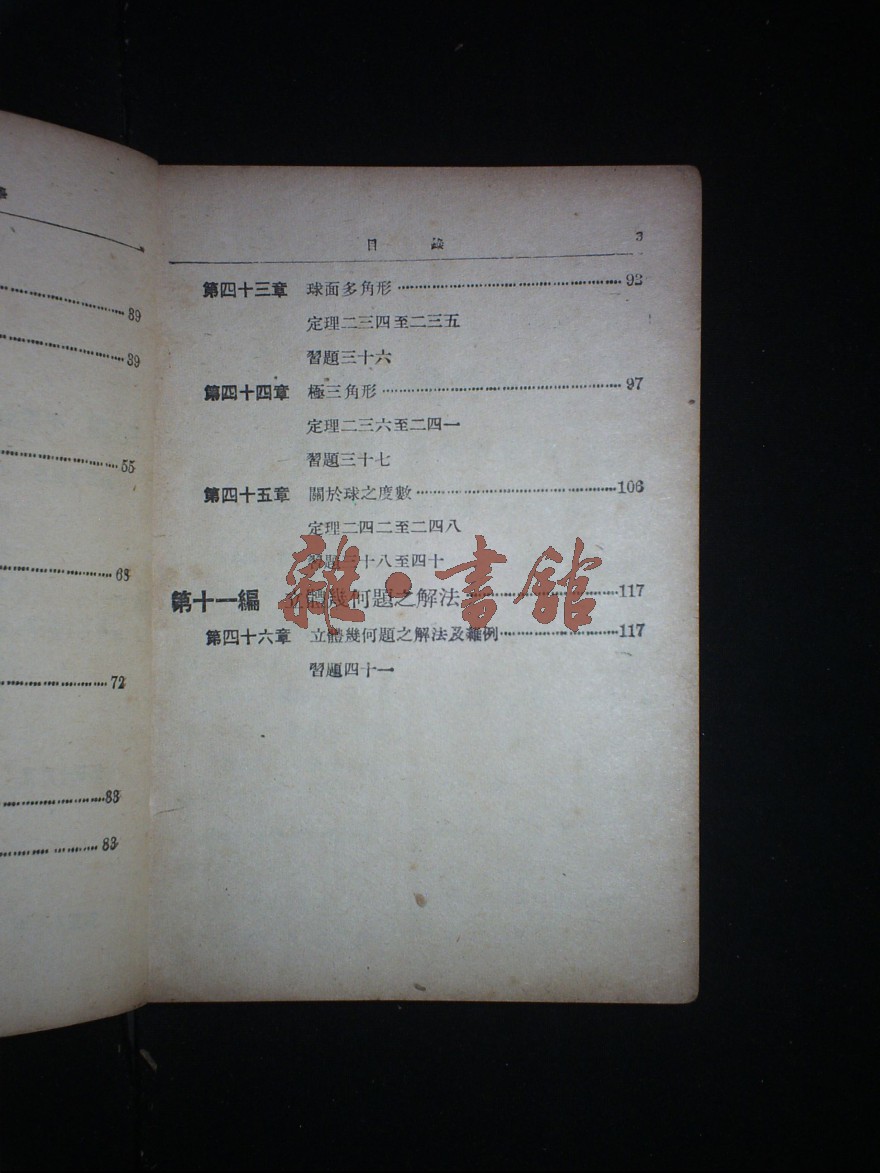 39
39
55
68
72
83
83
目 錄 3
第四十三章 球面多角形 93
定理二三四至二三五
習題三十六
第四十四章 極三角形 97
定理二三六至二四一
習題三十七
第四十五章 關於球之度數 106
定理二四二至二四八
習題三十八至四十
第十一編 立體幾何題之解法 117
第四十六章 立體幾何題之解法及雜例 117
習題四十一
雜·書館